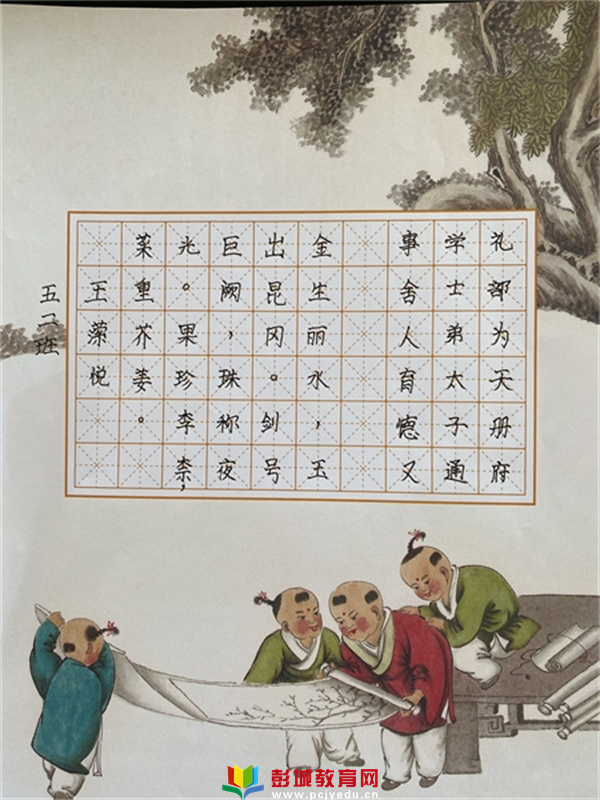 礼部为天册府
学士弟太子通
事舍人育德又
金生丽水，玉
出昆冈。剑号
巨阙，珠称夜
光。果珍李柰，
菜重芥姜。
王荣悦
五二班
彭城教育网
www.pcjyedu.cn